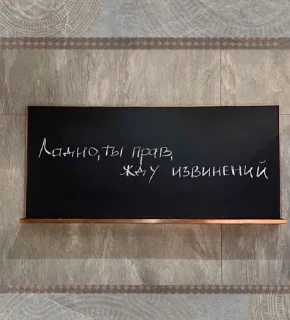 Ладно, ты прав,
жду извинений